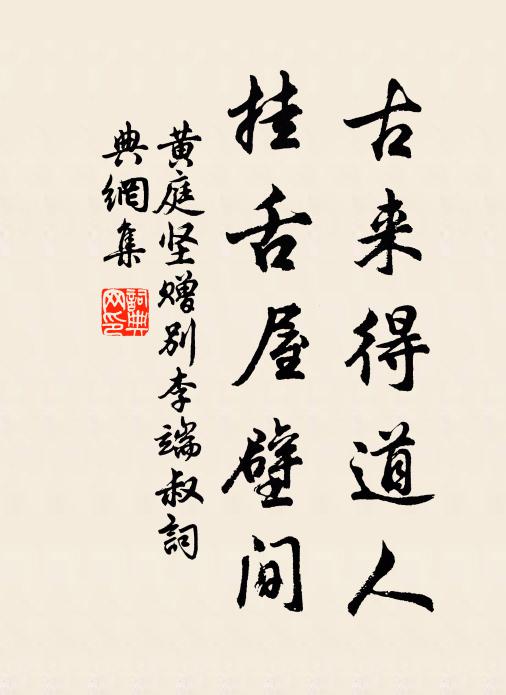 古来得道人
挂舌屋壁间
黄庭坚赠别李端叔詞
典網集
詞典网印